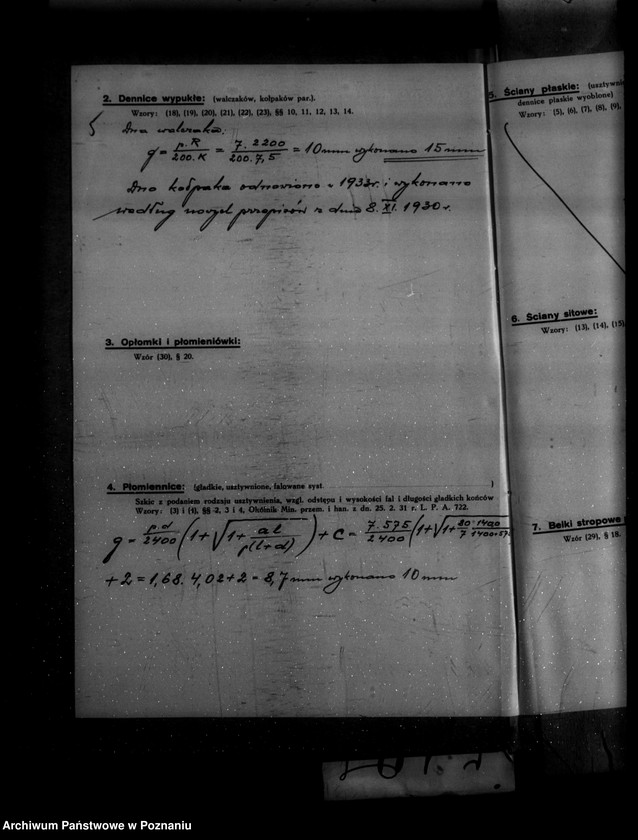 2. Dennice wypukłe: (walczaków, kołpaków par.).
Wzory: (18), (19), (20), (21), (22), (23), §§ 10, 11, 12, 13, 14.
Dna walczaka.
g = p.R / 200.K = 7.2200 / 200.7,5 = 10 mm wykonano 15 mm
Dno kołpaka odnowiono w 1933r. i wykonano
według przepisów z dnia 8.XI.1930r.
3. Opłomki i płomieniówki:
Wzór (30), § 20.
4. Płomiennice: (gładkie, usztywnione, falowane syst. )
Szkic z podaniem rodzaju usztywnienia, wzgl. odstępu i wysokości fal i długości gładkich końców
Wzory: (3) i (4), §§ 2, 3 i 4, Okólnik Min. przem. i han. z dn. 25. 2. 31 r. L. P. A. 722.
g = p.d / 2400 (1+√(1+ a l / p(l+d))) + c = 7.575 / 2400 (1+√(1+ 20.1400 / 7 1400+57
+2 = 1,68. 4,02+2 = 8,7 mm wykonano 10 mm
5. Ściany płaskie: (usztywni
dennice płaskie wyoblone)
Wzory: (5), (6), (7), (8), (9),
6. Ściany sitowe:
Wzory: (13), (14), (15)
7. Belki stropowe
Wzór (29), § 18.
Archiwum Państwowe w Poznaniu